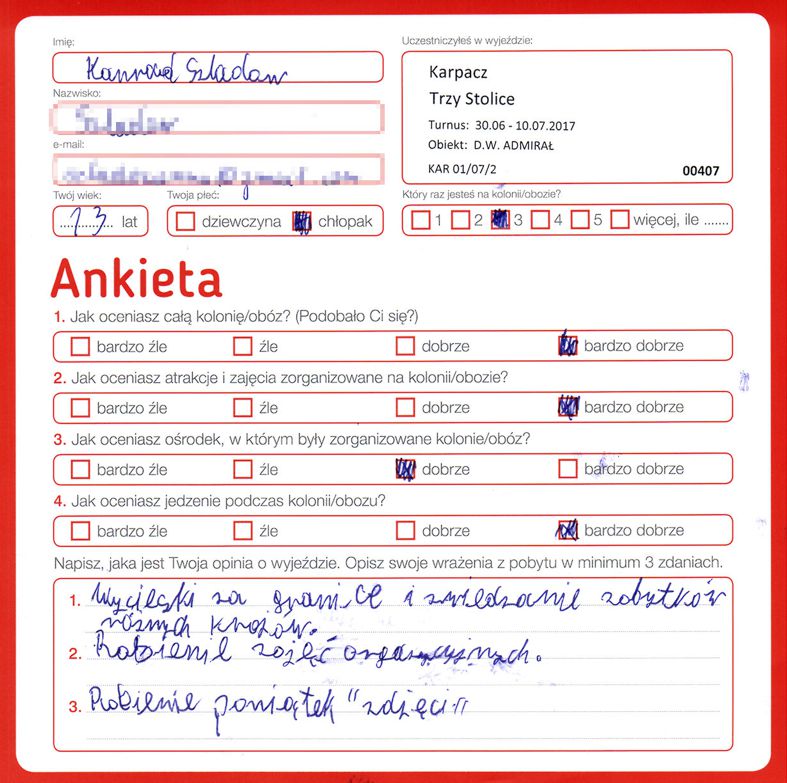 Imię:
Uczestniczyłeś w wyjeździe:
Konrad
Karpacz
Trzy Stolice
Nazwisko:
Turnus: 30.06 - 10.07.2017
Obiekt: D.W. ADMIRAŁ
e-mail:
KAR 01/07/2 00407
Twój wiek: Twoja płeć: Który raz jesteś na kolonii/obozie?
13 lat dziewczyna chłopak 1 2 3 4 5 więcej, ile .......
Ankieta
1. Jak oceniasz całą kolonię/obóz? (Podobało Ci się?)
bardzo źle źle dobrze bardzo dobrze
2. Jak oceniasz atrakcje i zajęcia zorganizowane na kolonii/obozie?
bardzo źle źle dobrze bardzo dobrze
3. Jak oceniasz ośrodek, w którym były zorganizowane kolonie/obóz?
bardzo źle źle dobrze bardzo dobrze
4. Jak oceniasz jedzenie podczas kolonii/obozu?
bardzo źle źle dobrze bardzo dobrze
Napisz, jaka jest Twoja opinia o wyjeździe. Opisz swoje wrażenia z pobytu w minimum 3 zdaniach.
1. Wycieski za granice i zwiedzanie zobytków
różnych krajów.
2. Robienie zajęć
3. Robienie poniątek "zdjęci"